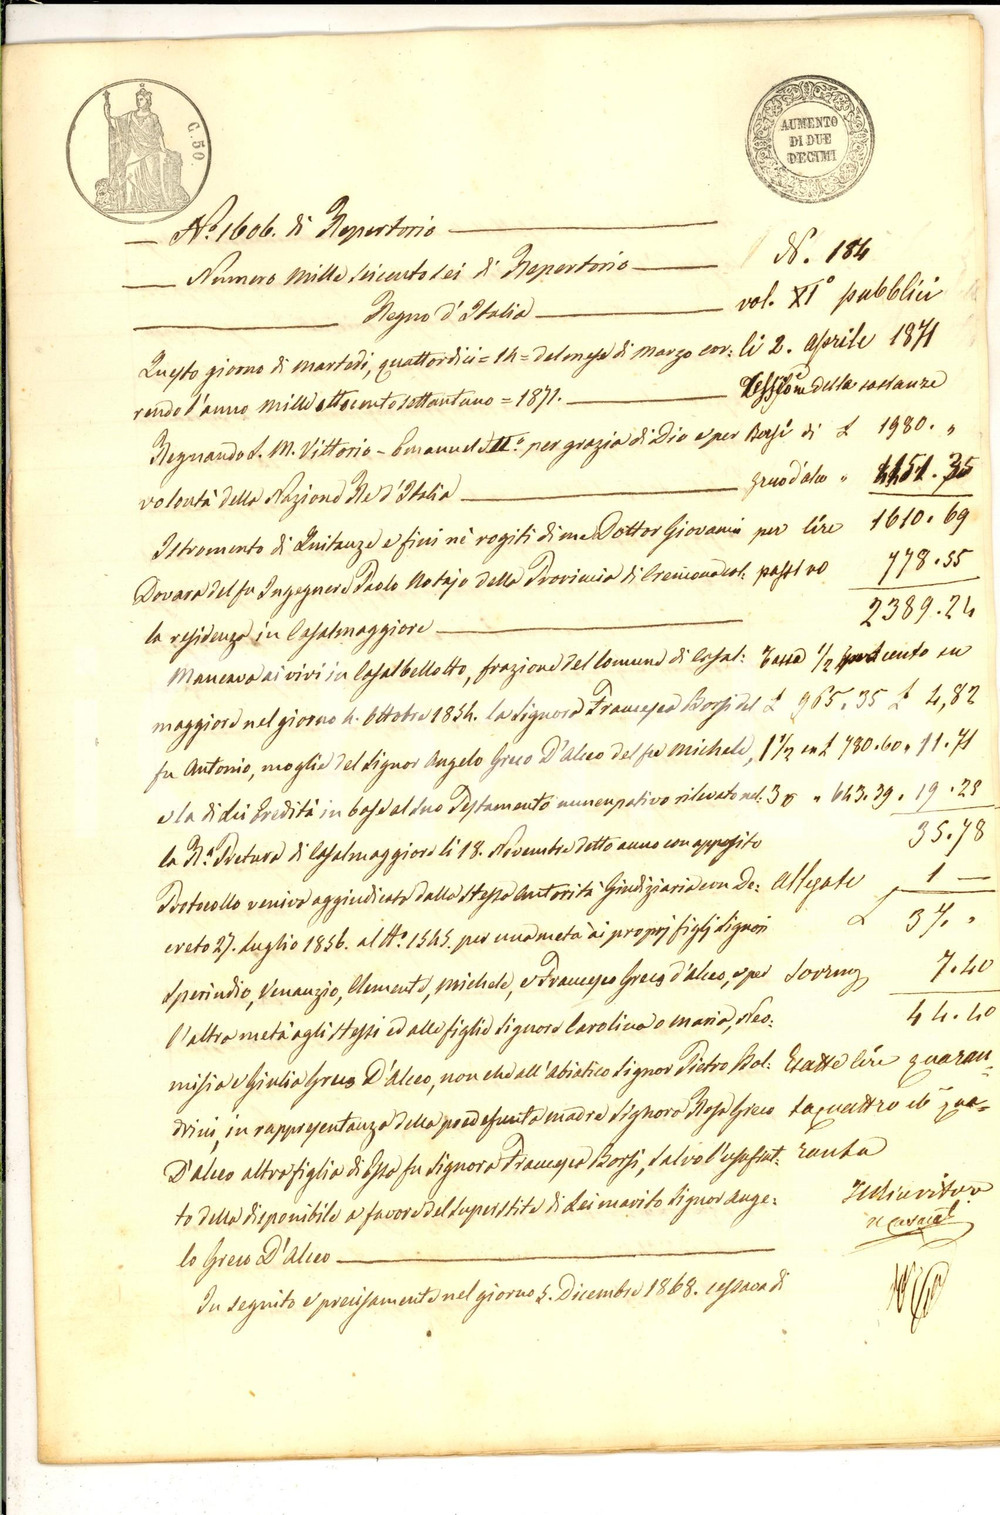 C. 50.
AUMENTO
DI DUE
DECIMI
N.° 1606. di Repertorio
Numero Mille seicento sei di Repertorio
Regno d'Italia
Questo giorno di martedì, quattordici = 14 = del mese di marzo cor:
rendo l'anno mille ottocento settantuno = 1871.
Regnando S. M. Vittorio - Emanuele II.° per grazia di Dio e per
volontà della Nazione Re d'Italia
Istromento di Quitanze e fini nè rogiti di me Dottor Giovanni
Dovara del fu Ingegnere Paolo Notajo della Provincia di Cremona col:
la residenza in Casalmaggiore
Mancava ai vivi in Casalbellotto, frazione del Comune di Casal:
maggiore nel giorno 4. Ottobre 1854. la Signora Francesca Borsi del
fu Antonio, moglie del Signor Angelo Greco D'Alceo del fu Michele,
e la di lei Eredità in base al suo Testamento nuncupativo rilevato nel:
la R.a Pretura di Casalmaggiore li 18. Novembre detto anno con apposito
Protocollo veniva aggiudicata dalla stessa Autorità Giudiziaria con De:
creto 27. Luglio 1856. al N.° 1545. per una metà ai proprj figlj Signori
Sperindio, Venanzio, Clemente, Michele, e Francesco Greco d'Alceo, e per
l'altra metà agli stessi ed alle figlie Signore Carolina o Maria, Neo:
misia e Giulia Greco D'Alceo, non che all'Abiatico Signor Pietro Bol:
drini, in rappresentanza della predefunta madre Signora Rosa Greco
D'Alceo altra figlia di essa fu Signora Francesca Borsi, salvo l'usufrut:
to della disponibile a favore del superstite di Lei marito Signor Ange:
lo Greco D'Alceo
In seguito e precisamente nel giorno 5. Dicembre 1868. cessava di
N. 184
vol. XI° pubblici
li 2. Aprile 1871
Cessione della sostanze
Borsi di £ 1980. "
" 1151. 35
per lire 1610. 69
passivo 778. 55
2389. 24
Tassa 1/2 per cento su
£ 965. 35 £ 4,82
1 1/2 su £ 780. 60 " 11. 71
3 % " 643. 39 " 19. 23
35. 78
Allegato 1 —
£ 37. "
Sovrimp 7. 40
44. 40
Esatte lire quaran
taquattro e qua=
ranta
Il Ricevitore